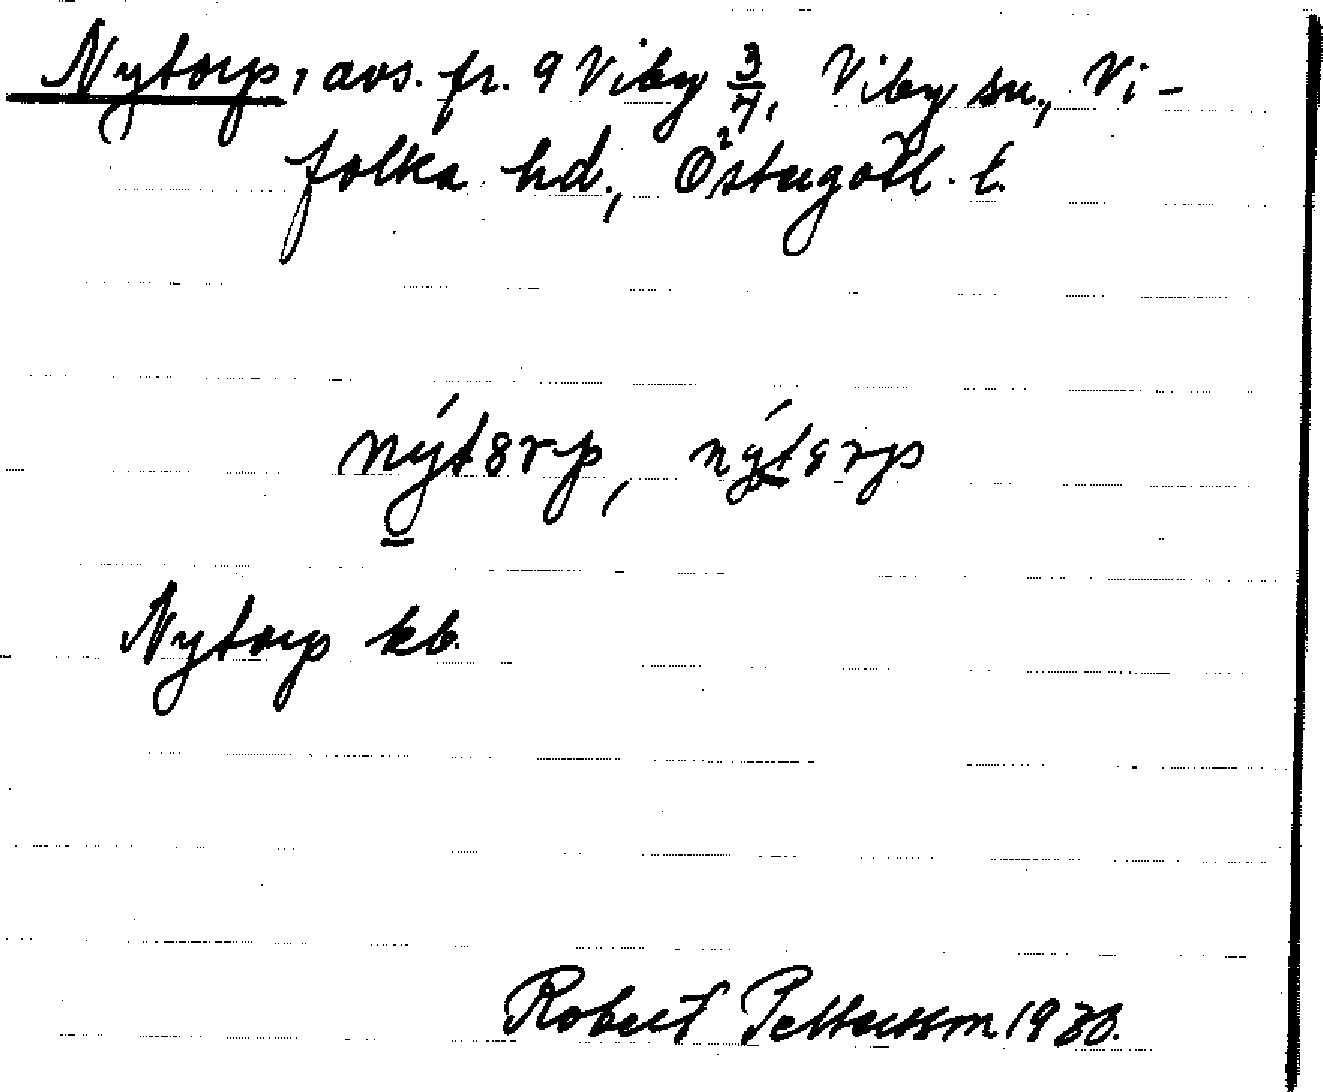 Nytorp, avs. fr. 9 Viby 3/7, Viby sn., Vi-
folka hd., Östergötl. l.
nýt8rp, nýt8rp
Nytorp kb.
Robert Pettersson 1933.